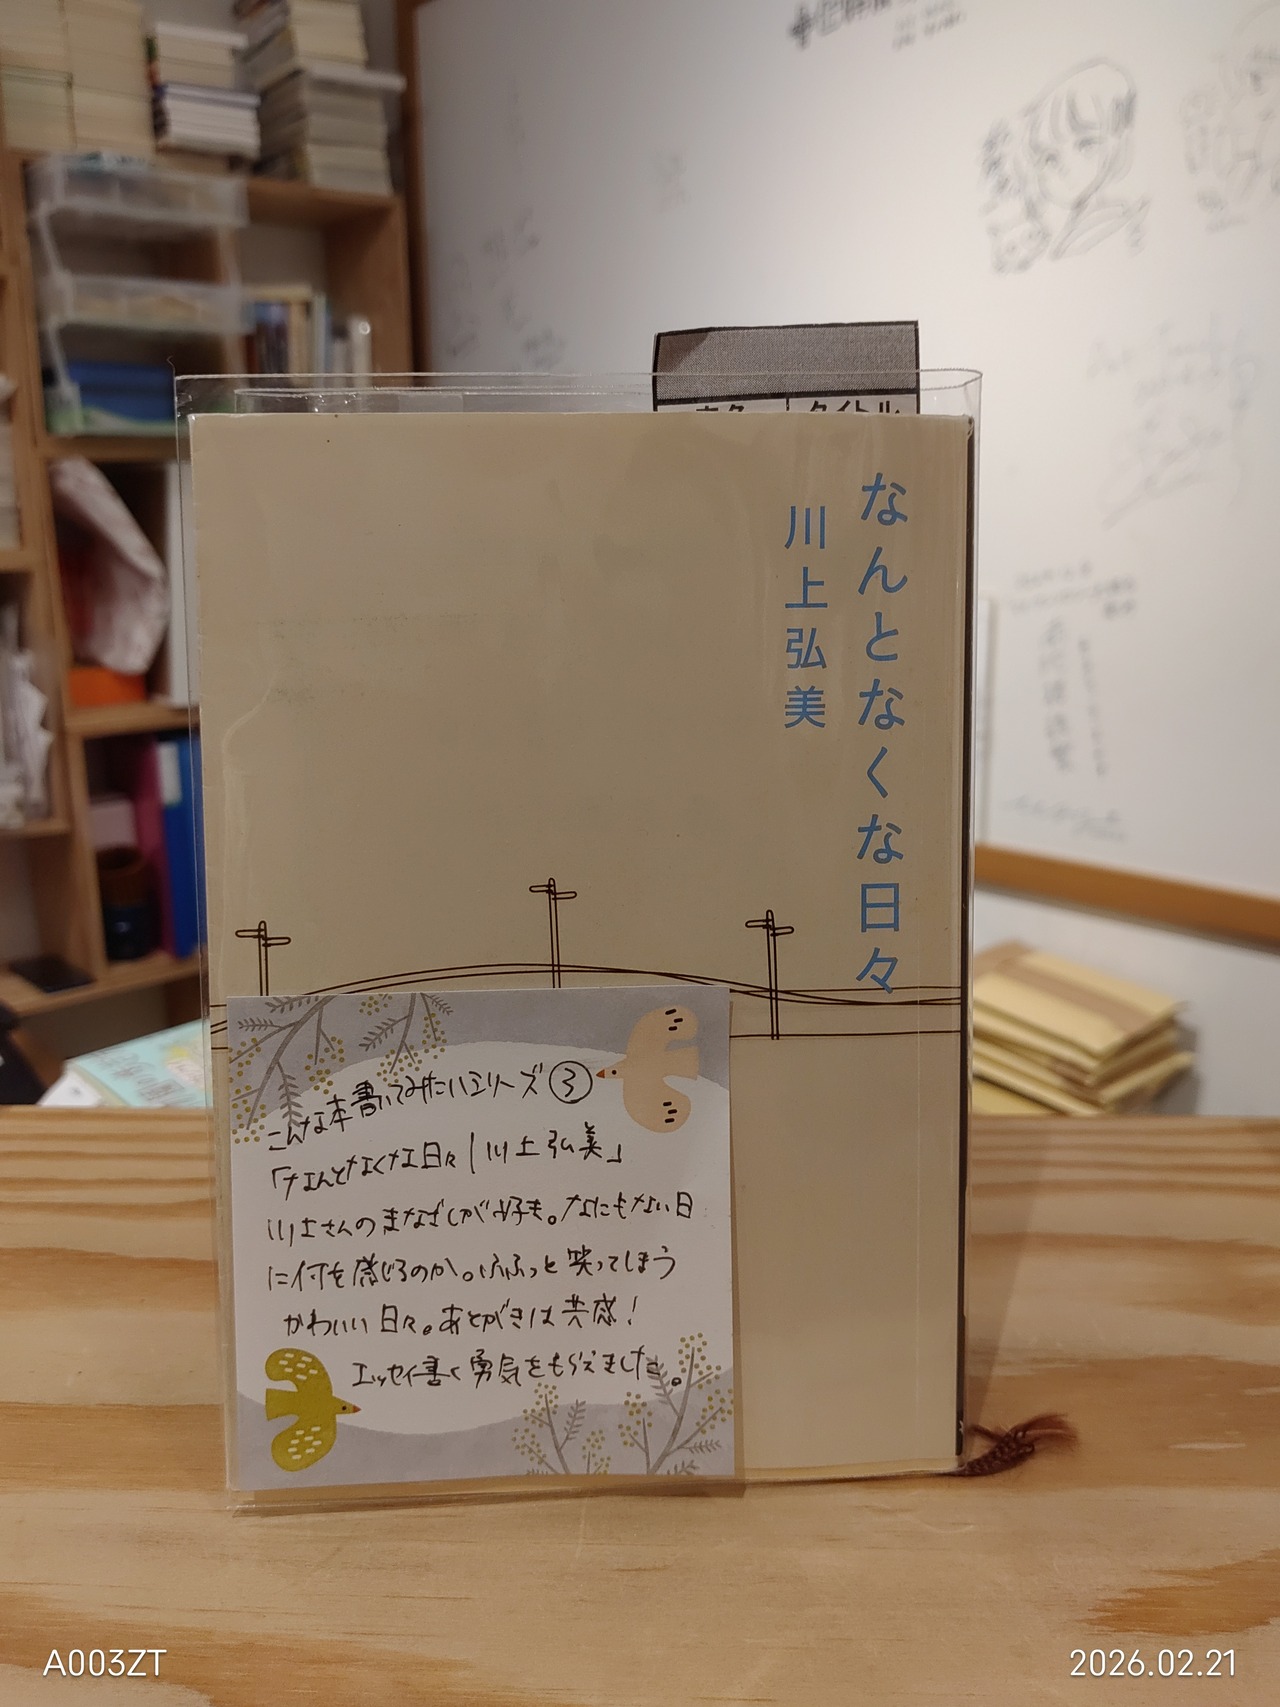 タイトル
なんとなくな日々
川上弘美
こんな本書いてみたいシリーズ③
「なんとなくな日々/川上弘美」
川上さんのまなざしが好き。なにもない日
に何を感じるのか。ふふっと笑ってしまう
かわいい日々。あとがきは共感!
エッセイ書く勇気をもらえました。
A003ZT
2026.02.21